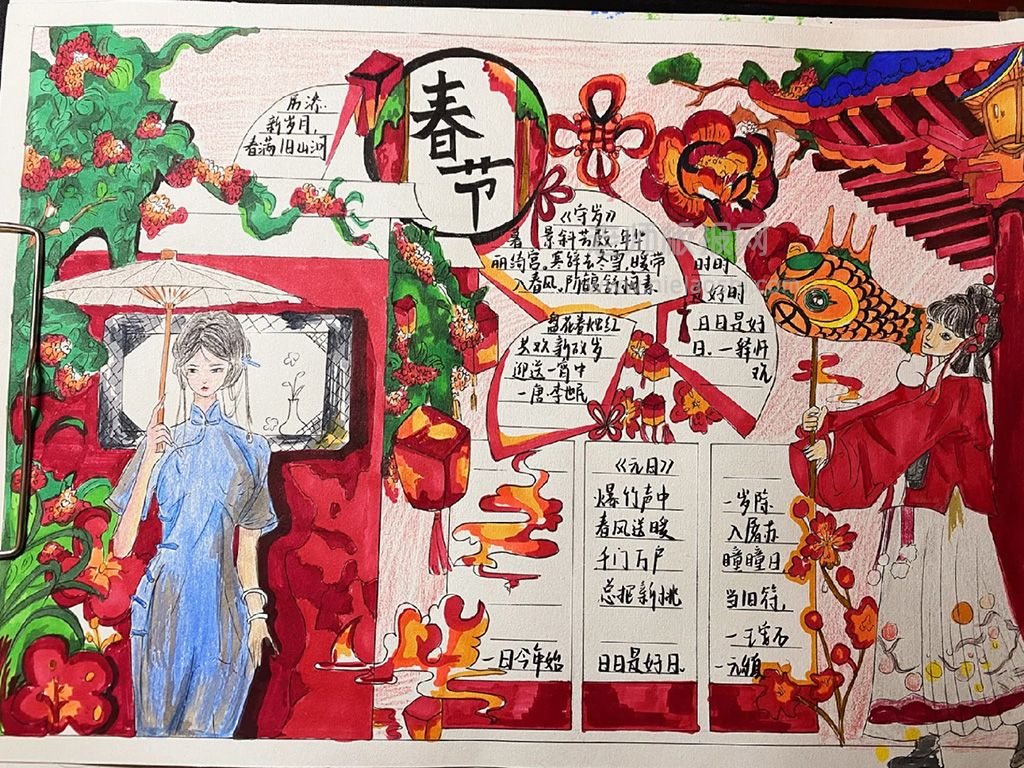 春节
历添
新岁月,
春满旧山河
《守岁》
暮景斜芳殿,年华
丽绮宫。寒辞去冬雪,暖带
入春风。阶馥舒梅素
盘花卷烛红
共欢新故岁
迎送一宵中
一唐·李世民
时时
良好时
日日是好
日。一释
一日今年始
《元日》
爆竹声中
春风送暖
千门万户
总把新桃
日日是好日。
一岁除
入屠苏
瞳瞳日
当旧符,
一王安石
一元稹